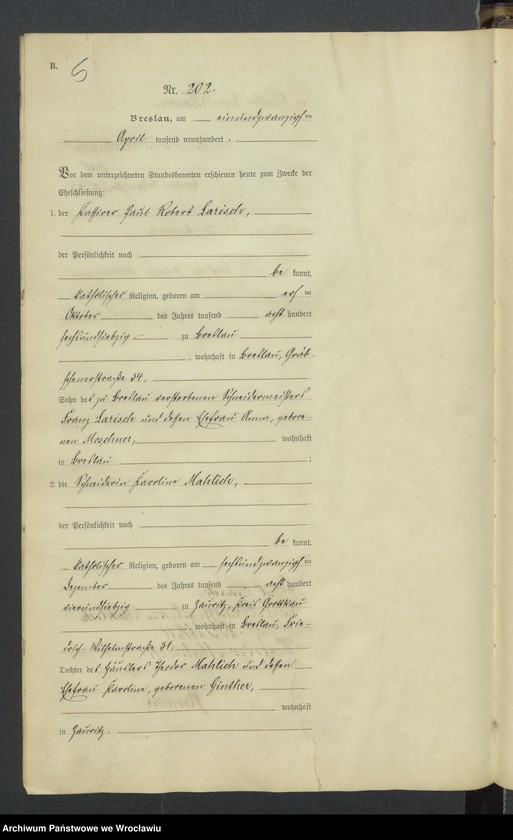 B.
5
Nr. 202.
Breslau, am einundzwanzigsten
April tausend neunhundert.
Vor dem unterzeichneten Standesbeamten erschienen heute zum Zwecke der
Eheschließung:
1. der Kassirer Paul Robert Larisch,
der Persönlichkeit nach
be kannt,
katholischer Religion, geboren am elften
Oktober des Jahres tausend acht hundert
sechsundsiebzig zu Breslau
, wohnhaft in Breslau, Gräb-
schenerstraße 34,
Sohn des zu Breslau verstorbenen Schneidermeisters
Franz Larisch und dessen Ehefrau Anna, gebore-
nen Moschner, wohnhaft
in Breslau ;
2. die Schneiderin Karoline Mahlich,
der Persönlichkeit nach
be kannt,
katholischer Religion, geboren am sechsundzwanzigsten
Dezember des Jahres tausend acht hundert
vierundsiebzig zu Zauritz, Kreis Grottkau
, wohnhaft in Breslau, Frie-
drich-Wilhelmstraße 51,
Tochter des Häuslers Theodor Mahlich und dessen
Ehefrau Karoline, geborenen Günther,
wohnhaft
in Zauritz.
Archiwum Państwowe we Wrocławiu